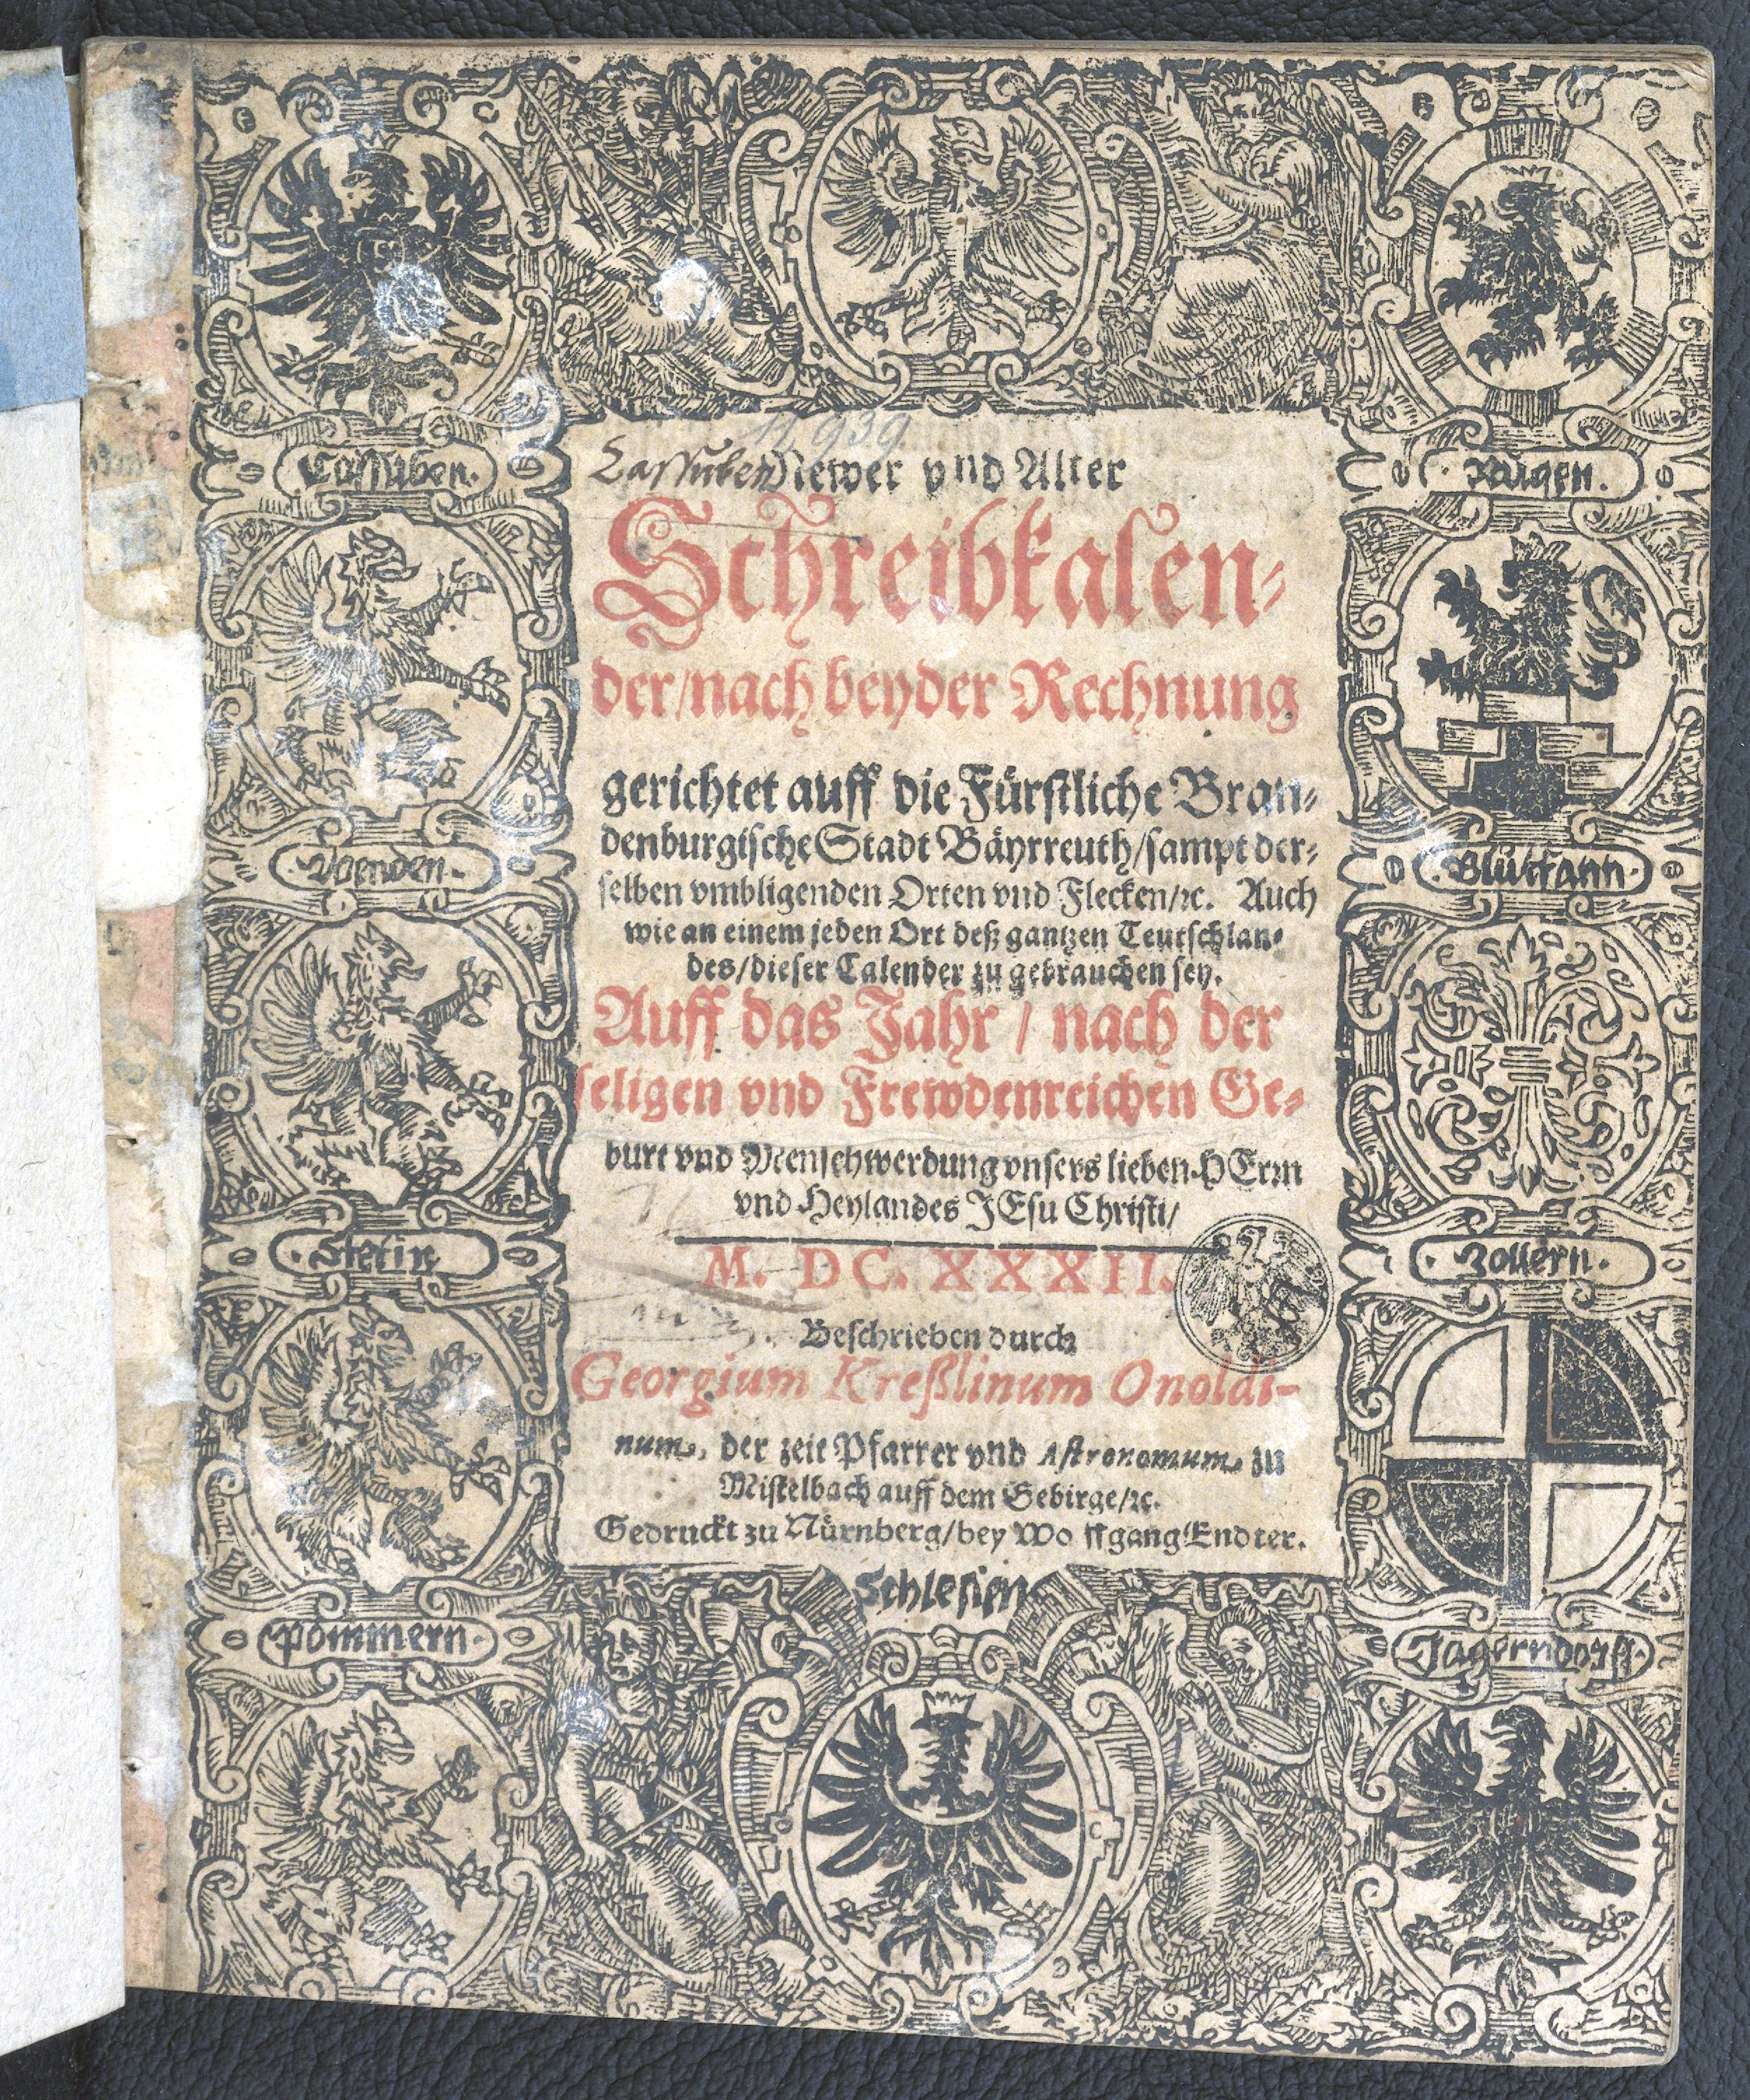 11939
Cassuben Newer vnd Alter
Schreibkalen⸗
der/nach beyder Rechnung
gerichtet auff die Fürstliche Bran⸗
denburgische Stadt Bäyrreuth/sampt der⸗
selben vmbligenden Orten vnd Flecken/ꝛc. Auch
wie an einem jeden Ort deß gantzen Teutschlan⸗
des/dieser Calender zu gebrauchen sey.
Auff das Jahr / nach der
seligen vnd Frewdenreichen Ge⸗
burt vnd Menschwerdung vnsers lieben HErrn
vnd Heylandes JEsu Christi/
M. DC. XXXII.
Beschrieben durch
Georgium Kreßlinum Onoldi-
num, der zeit Pfarrer vnd Astronomum zu
Mistelbach auff dem Gebirge/ꝛc.
Gedruckt zu Nürnberg/bey Wolffgang Endter.
Cassuben.
Wenden.
Stetin
Pommern.
Schlesien
Rügen.
Blütfann.
Zollern.
Jägerndorff.